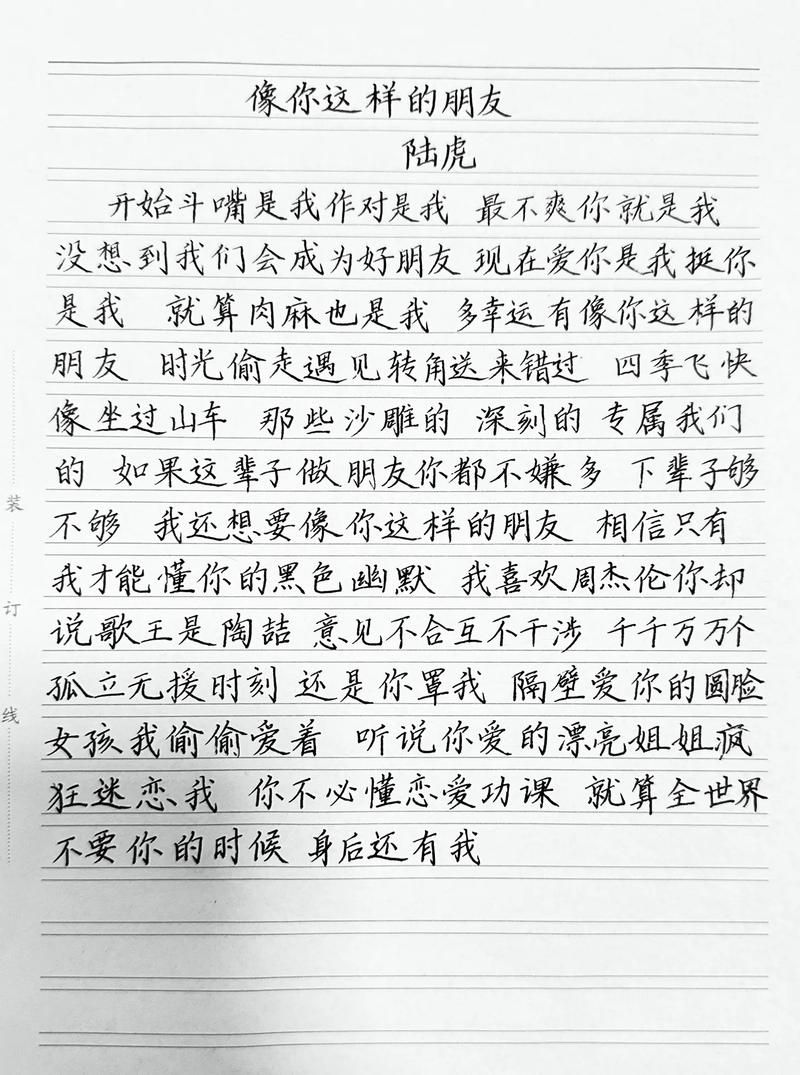 像你这样的朋友
陆虎
开始斗嘴是我作对是我 最不爽你就是我
没想到我们会成为好朋友 现在爱你是我挺你
是我 就算肉麻也是我 多幸运有像你这样的
朋友 时光偷走遇见转角送来错过 四季飞快
像坐过山车 那些沙雕的 深刻的 专属我们
的 如果这辈子做朋友你都不嫌多 下辈子够
不够 我还想要像你这样的朋友 相信只有
我才能懂你的黑色幽默 我喜欢周杰伦你却
说歌王是陶喆 意见不合互不干涉 千千万万个
孤立无援时刻 还是你罩我 隔壁爱你的圆脸
女孩我偷偷爱着 听说你爱的漂亮姐姐疯
狂迷恋我 你不必懂恋爱功课 就算全世界
不要你的时候 身后还有我
装
订
线